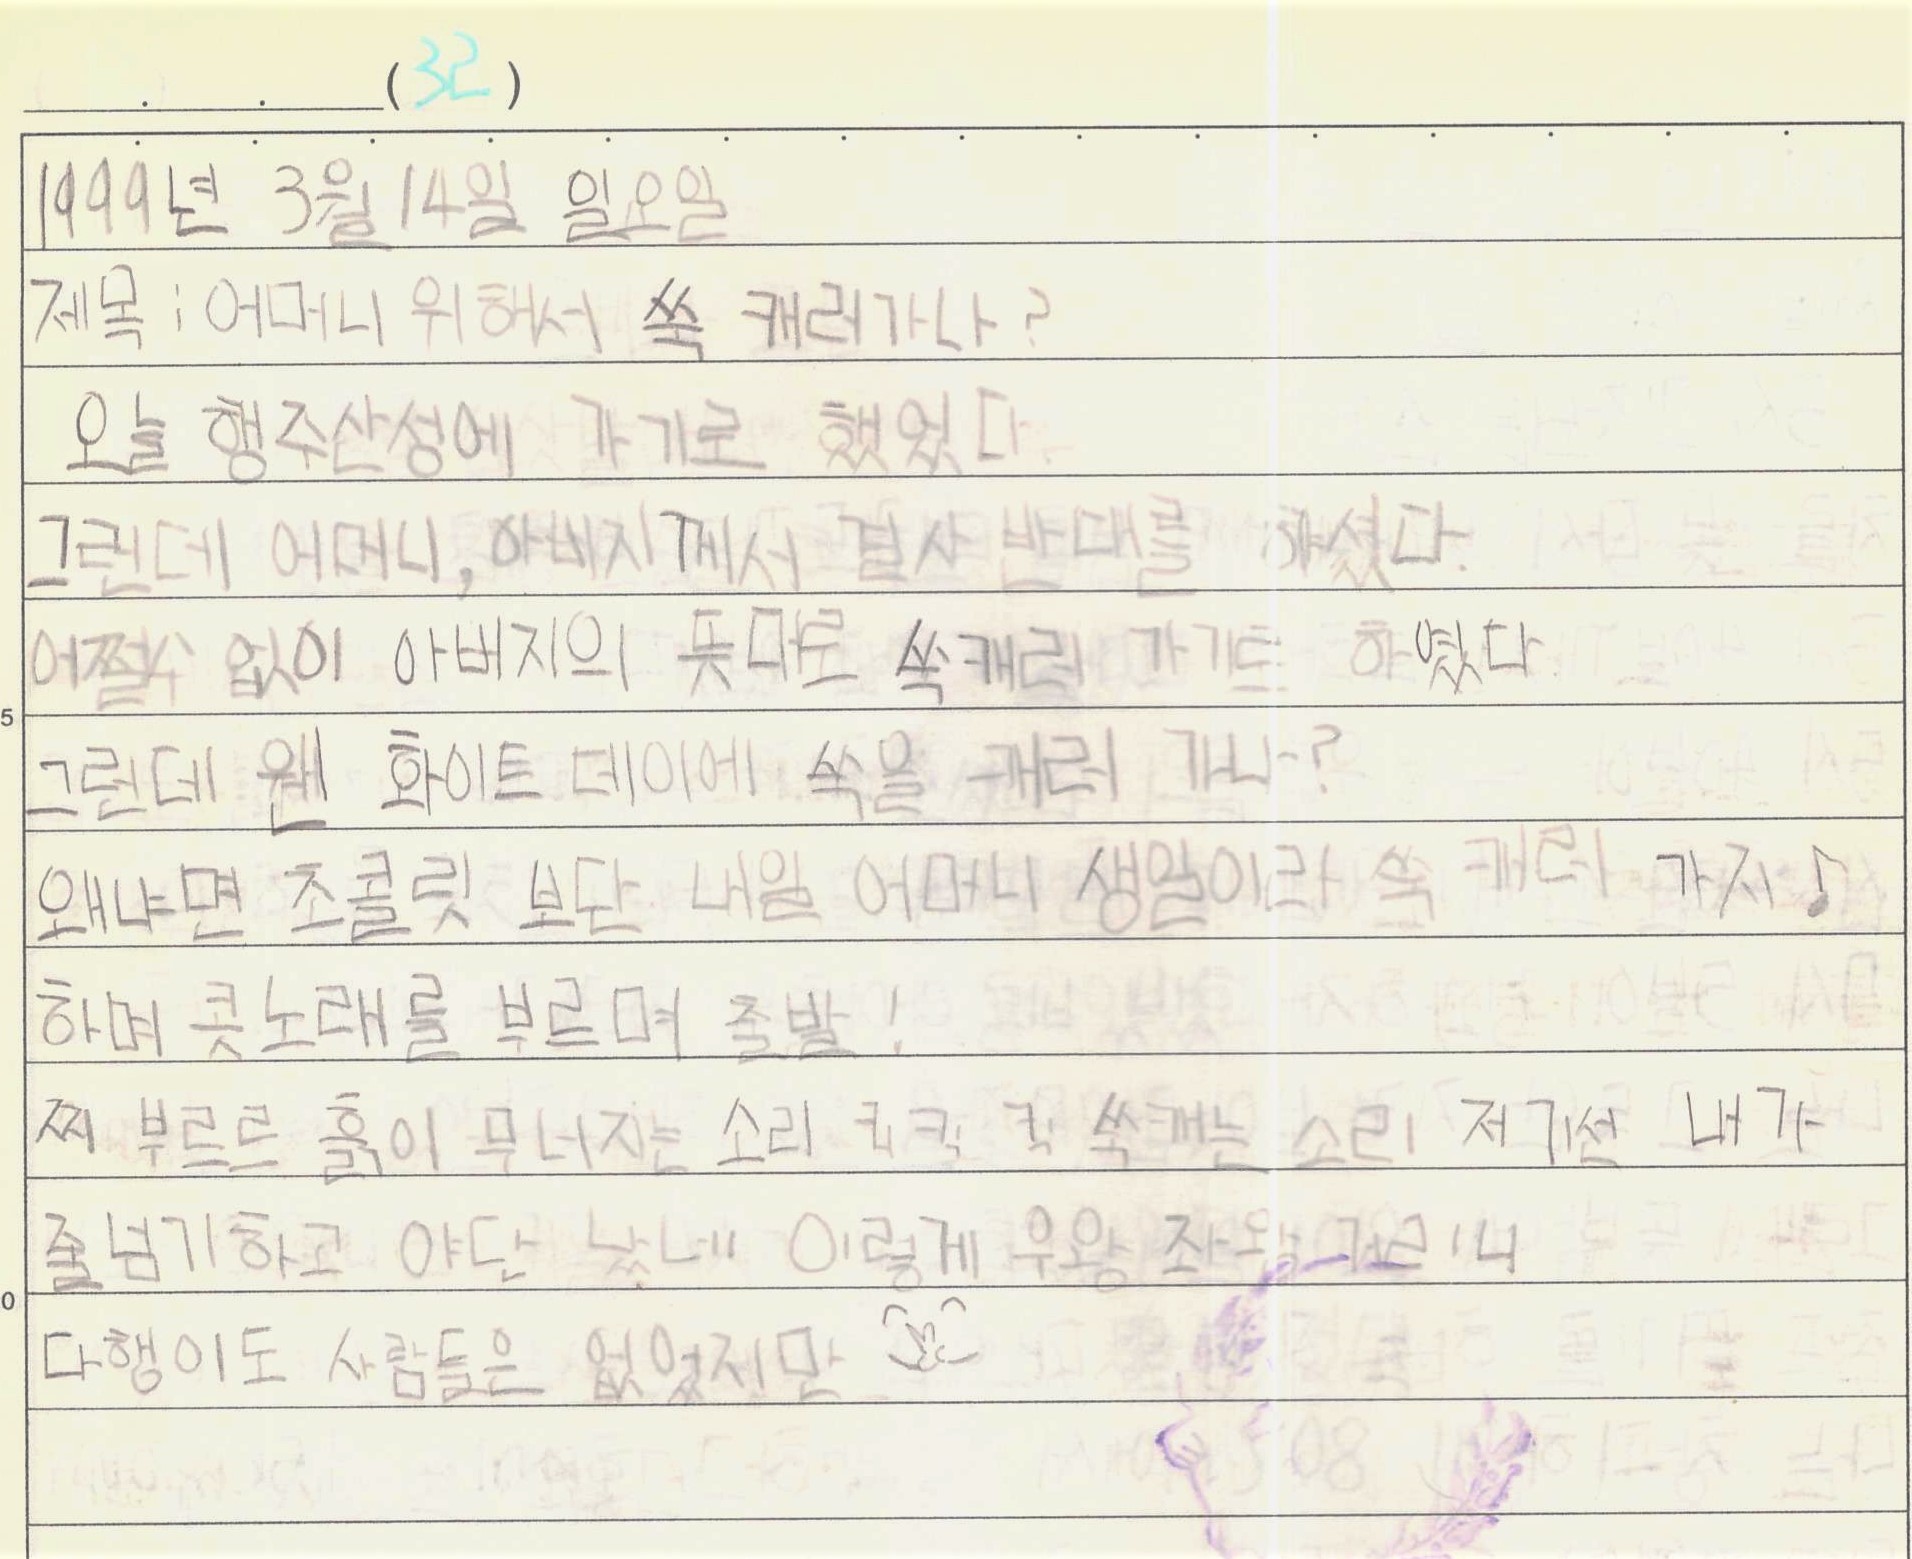 (32)
1999년 3월 14일 일요일
제목 : 어머니 위해서 쑥 캐러가나?
오늘 행주산성에 가기로 했었다.
그런데 어머니, 아버지께서 결사 반대를 하셨다.
어쩔수 없이 아버지의 뜻대로 쑥캐러 가기로 하였다
그런데 웬 화이트 데이에 쑥을 캐러 가나?
왜냐면 초콜릿 보단 내일 어머니 생일이라 쑥 캐러 가지♪
하며 콧노래를 부르며 출발!
찌 부르르 흙이 무너지는 소리 쑥캐는 소리 저기선 내가
줄넘기하고 야단 났네 이렇게 우왕 좌왕 거리니
다행이도 사람들은 없었지만
5
0